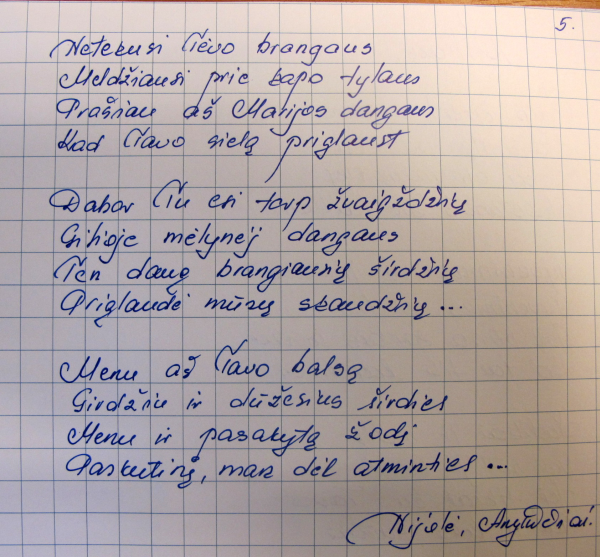 5.
Netekusi Tėvo brangaus
Meldžiausi prie kapo tylaus
Prašiau aš Marijos dangaus
Kad Tavo sielą priglaust
Dabar Tu esi tarp žvaigždžių
Gilioje mėlynėj dangaus
Ten daug brangiausių širdžių
Priglaudė mūsų skaudžių...
Menu aš Tavo balsą
Girdžiu ir dūžesius širdies
Menu ir pasakytą žodį
Paskutinį, man dėl atminties...
Nijolė,